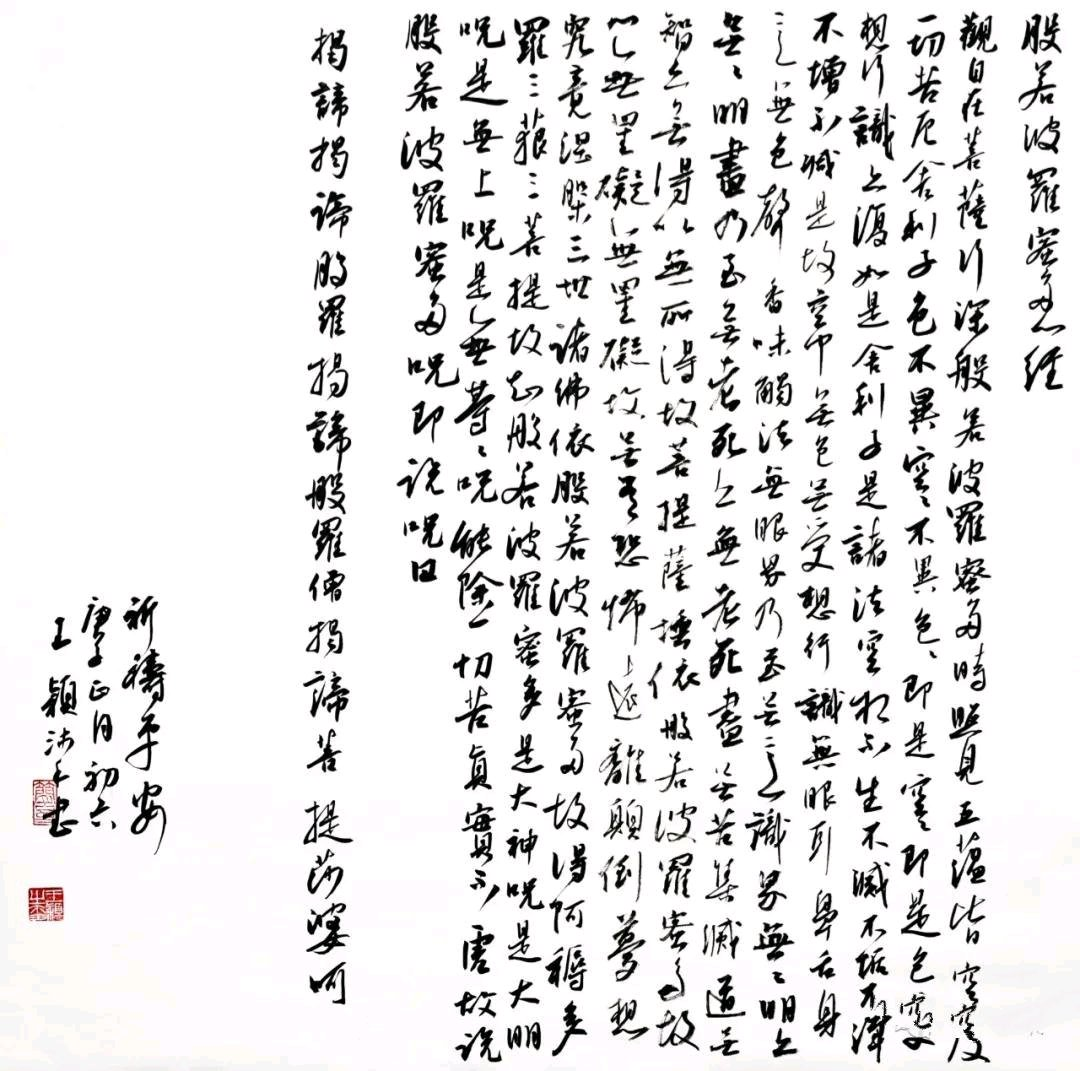 般若波羅蜜多心經
觀自在菩薩行深般若波羅蜜多時照見五蘊皆空度
一切苦厄舍利子色不異空空不異色色即是空空即是色受
想行識亦復如是舍利子是諸法空相不生不滅不垢不淨
不增不減是故空中無色無受想行識無眼耳鼻舌身
意無色聲香味觸法無眼界乃至無意識界無無明亦
無無明盡乃至無老死亦無老死盡無苦集滅道無
智亦無得以無所得故菩提薩埵依般若波羅蜜多故
心無罣礙無罣礙故無有恐怖遠離顛倒夢想
究竟涅槃三世諸佛依般若波羅蜜多故得阿耨多
羅三藐三菩提故知般若波羅蜜多是大神咒是大明
咒是無上咒是無等等咒能除一切苦真實不虛故說
般若波羅蜜多咒即說咒曰
揭諦揭諦般羅揭諦般羅僧揭諦菩提莎婆呵
祈禱平安
庚子正月初六
王穎沐手書